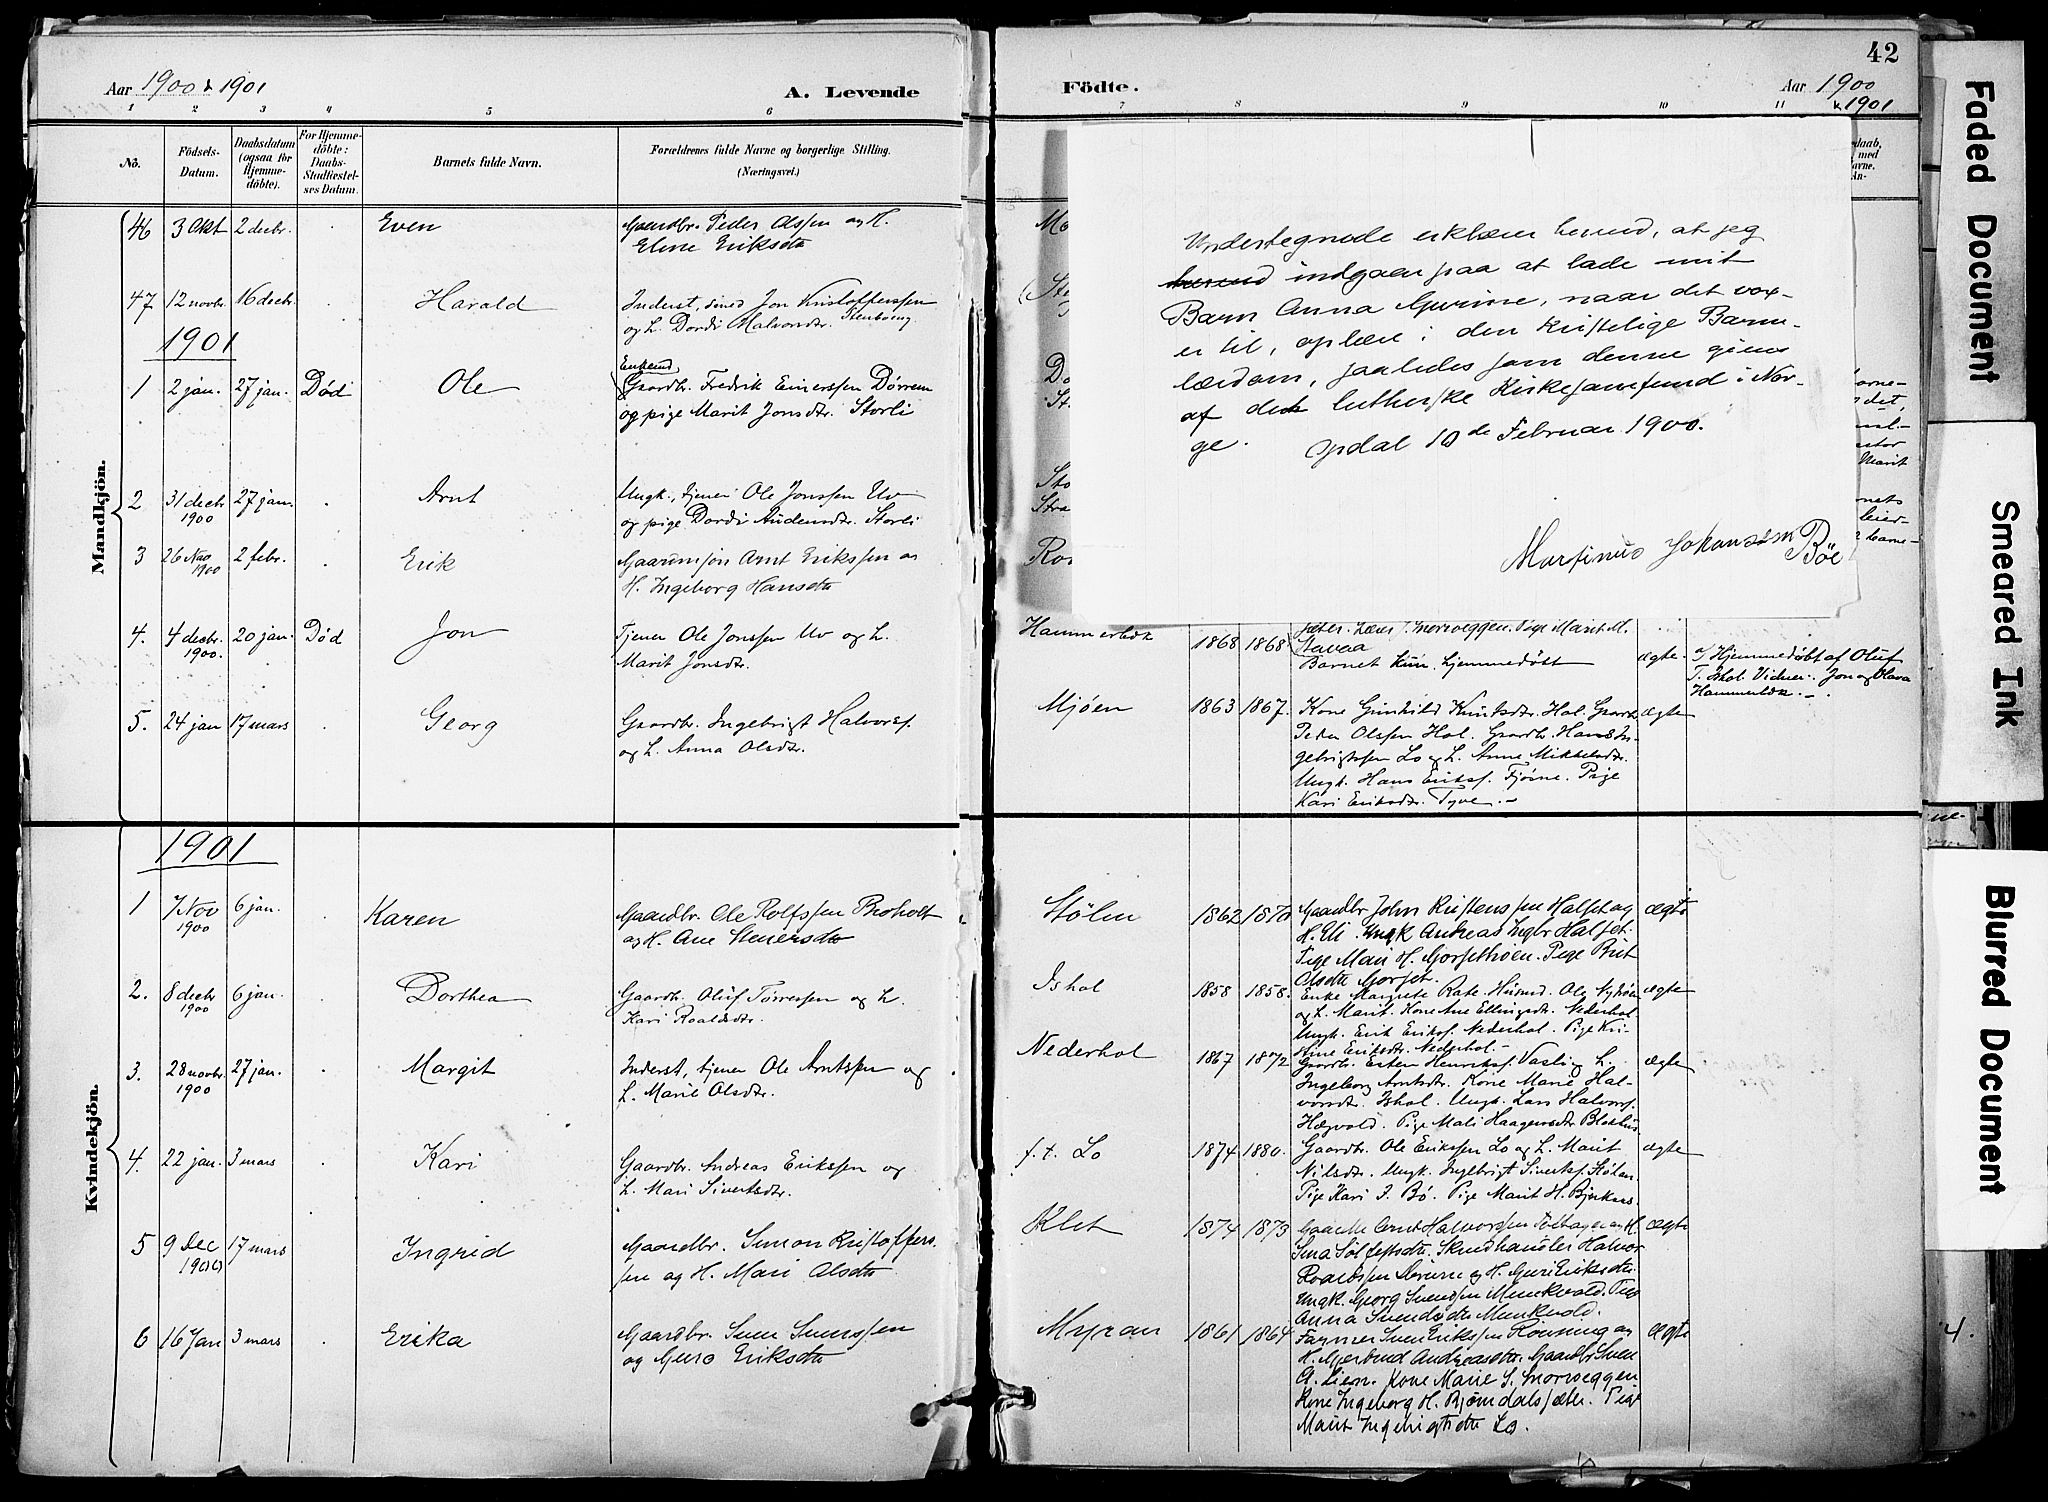 Aar 1900 & 1901
A. Levende
1 2 3 4 5 6
No.
Födsels-
Datum.
Daabsdatum
(ogsaa for
Hjemme-
döbte).
For Hjemme-
döbte:
Daabs-
Stadfæstel-
ses Datum.
Barnets fulde Navn.
Forældrenes fulde Navne og borgerlige Stilling.
(Næringsvei.)
Mandkjön.
46 3 Okt 2 decbr. Even Gaardbr. Peder Olssen og H.
Eline Eriksdtr
47 12 novbr. 16 decbr. Harald Inderst, smed Jon Kristofferssen
og h. Dordi Halvorsdtr. Stenbøeng
1901
1 2 jan. 27 jan. Død Ole Enkemd
Gaardbr. Fredrik Einerssen Dørrem
og pige Marit Jonsdtr. Storli
2 31 decbr 1900 27 jan. Arnt Ungk., tjener Ole Jonssen Uv
og pige Dordi Audensdtr. Storli
3 26 Nov 1900 2 febr. Erik Gaardmsøn Arnt Erikssen og
H. Ingeborg Hansdtr
4. 4 decbr. 1900. 20 jan. Død Jon Tjener Ole Jonssen Uv og h.
Marit Jonsdtr.
5. 24 jan 17 mars Georg Gaardbr. Ingebrigt Halvorss.
og h. Anna Olsdtr.
Kvindekjön.
1901
1 7 Nov 1900 6 jan. Karen Gaardbr. Ole Rolfssen Broholt
og H. Ane Stenersdtr
2. 8 decbr 1900 6 jan. Dorthea Gaardb. Oluf Tørressen og h.
Kari Roaldsdtr.
3. 28 novbr. 1900 27 jan. Margit Inderst, tjener Ole Arntssen og
h. Marit Olsdtr.
4. 22 jan. 3 mars Kari Gaardbr. Andreas Erikssen og
h. Mari Sivertsdtr.
5 9 Dec 1900 17 mars Ingrid Gaardbr. Simon Kristoffers-
sen og H. Mari Olsdtr
6 16 Jan 3 mars Erika Gaardbr. Sven Svenssen
og Guro Eriksdtr
Födte.
42
Aar 1900
& 1901
7 8 9 10 11
Undertegnede erklærer herved, at jeg
herved indgaar paa at lade mit
Barn Anna Gurine, naar det vox-
er til, oplære i den kristelige Barne-
lærdom, saaledes som denne gives
af den lutherske Kirkesamfund i Nor-
ge.
Opdal 10de Februar 1900.
Martinus Johansøn Bøe
Hammerbæk 1868 1868
Stavaa
Barnet kun hjemmedøbt
ægte.
Hjemmedøbt af Oluf
T. Ishol. Vidner: Jon og
Hammerbæk.
Mjøen 1863 1867. Kone Gunhild Knutsdtr. Hol. Gaardb. ægte
Peder Olssen Hol. Gaardbr. Hans In-
gebrigtssen Lo og h. Anne Mikkelsdtr.
Ungk. Hans Erikss. Fjørne. Pige
Kari Eriksdtr. Tyve.
Stølen 1862 1870 Gaardbr John Kristenssen Halset og ægte
H. Eli. Ungk Andreas Ingbr Halset.
Pige Mari H. Gorsethoen. Pige Brit
Olsdtr Gorset.
Ishol 1858 1858. Enke Margrete Rate. Husmd. Ole Nyhoen ægte
og h. Marit. Kone Ane Ellingsdtr. Nederhol
Ungk. Erik Erikss. Nederhol. Pige Kri-
stine Eriksdtr. Nederhol.
Nederhol 1867 1872 Gaardbr. Esten Henrikss. Vasli og h. ægte
Ingeborg Arntsdtr. Kone Marit Hal-
vorsdtr. Ishol. Ungk. Lars Halvorss.
Hægvold. Pige Mali Haagensdtr
f.t. Lo 1874 1880. Gaardbr. Ole Erikssen Lo og h. Marit ægte
Nilsdtr. Ungk. Ingebrigt Sivertss. Stølan.
Pige Kari I. Bø. Pige Marit H. Bjerkaas.
Klet 1874 1873 Gaardbr Arnt Halvorssen og H. ægte
Halvor
og H. Guri Eriksdtr.
Ungk. Georg Svendsen Munkvold. Pige
Anna Svendsdtr Munkvold.
Myran 1861 1864 Farmer Sven Erikssen og ægte
H. Gjertrud Andreasdtr. Gaardbr Sven
A. Lien. Kone Marie S. Snorveggen
Kone Ingeborg H. Bjørndalssæter. Pige
Marit Ingebrigtsdtr Lo.
Faded Document
Smeared Ink
Blurred Document